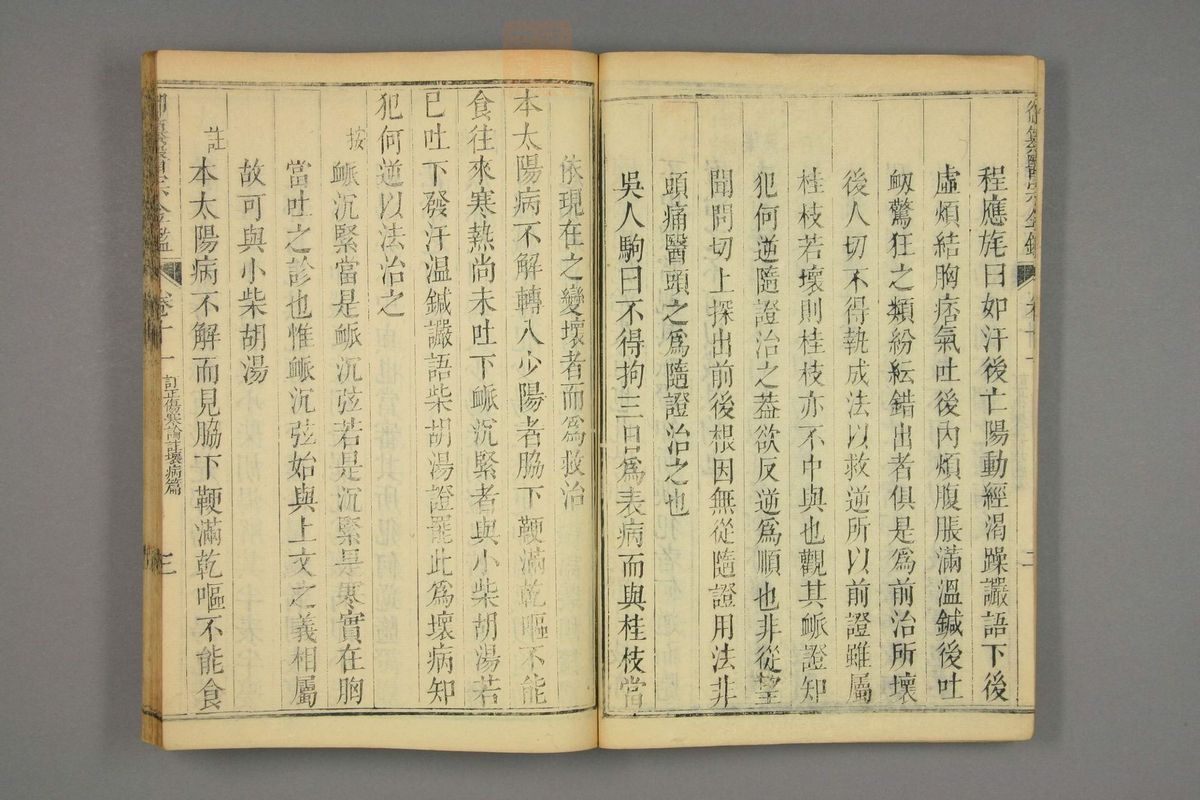 程應旄曰如汗後亡陽動經渴躁讝語下後
虛煩結胸痞氣吐後內煩腹脹滿溫鍼後吐
衂驚狂之類紛紜錯出者俱是爲前治所壞
後人切不得執成法以救逆所以前證雖屬
桂枝若壞則桂枝亦不中與也觀其脈證知
犯何逆隨證治之葢欲反逆爲順也非從望
聞問切上探出前後根因無從隨證用法非
頭痛醫頭之爲隨證治之也
吳人駒曰不得拘三日爲表病而與桂枝當
依現在之變壞者而爲救治
本太陽病不解轉入少陽者脇下鞕滿乾嘔不能
食往來寒熱尚未吐下脈沉緊者與小柴胡湯若
已吐下發汗温鍼讝語柴胡湯證罷此爲壞病知
犯何逆以法治之
按脈沉緊當是脈沉弦若是沉緊是寒實在胸
當吐之診也惟脈沉弦始與上文之義相屬
故可與小柴胡湯
註本太陽病不解而見脇下鞕滿乾嘔不能食
卷十一 訂正傷寒論註壞病篇 三